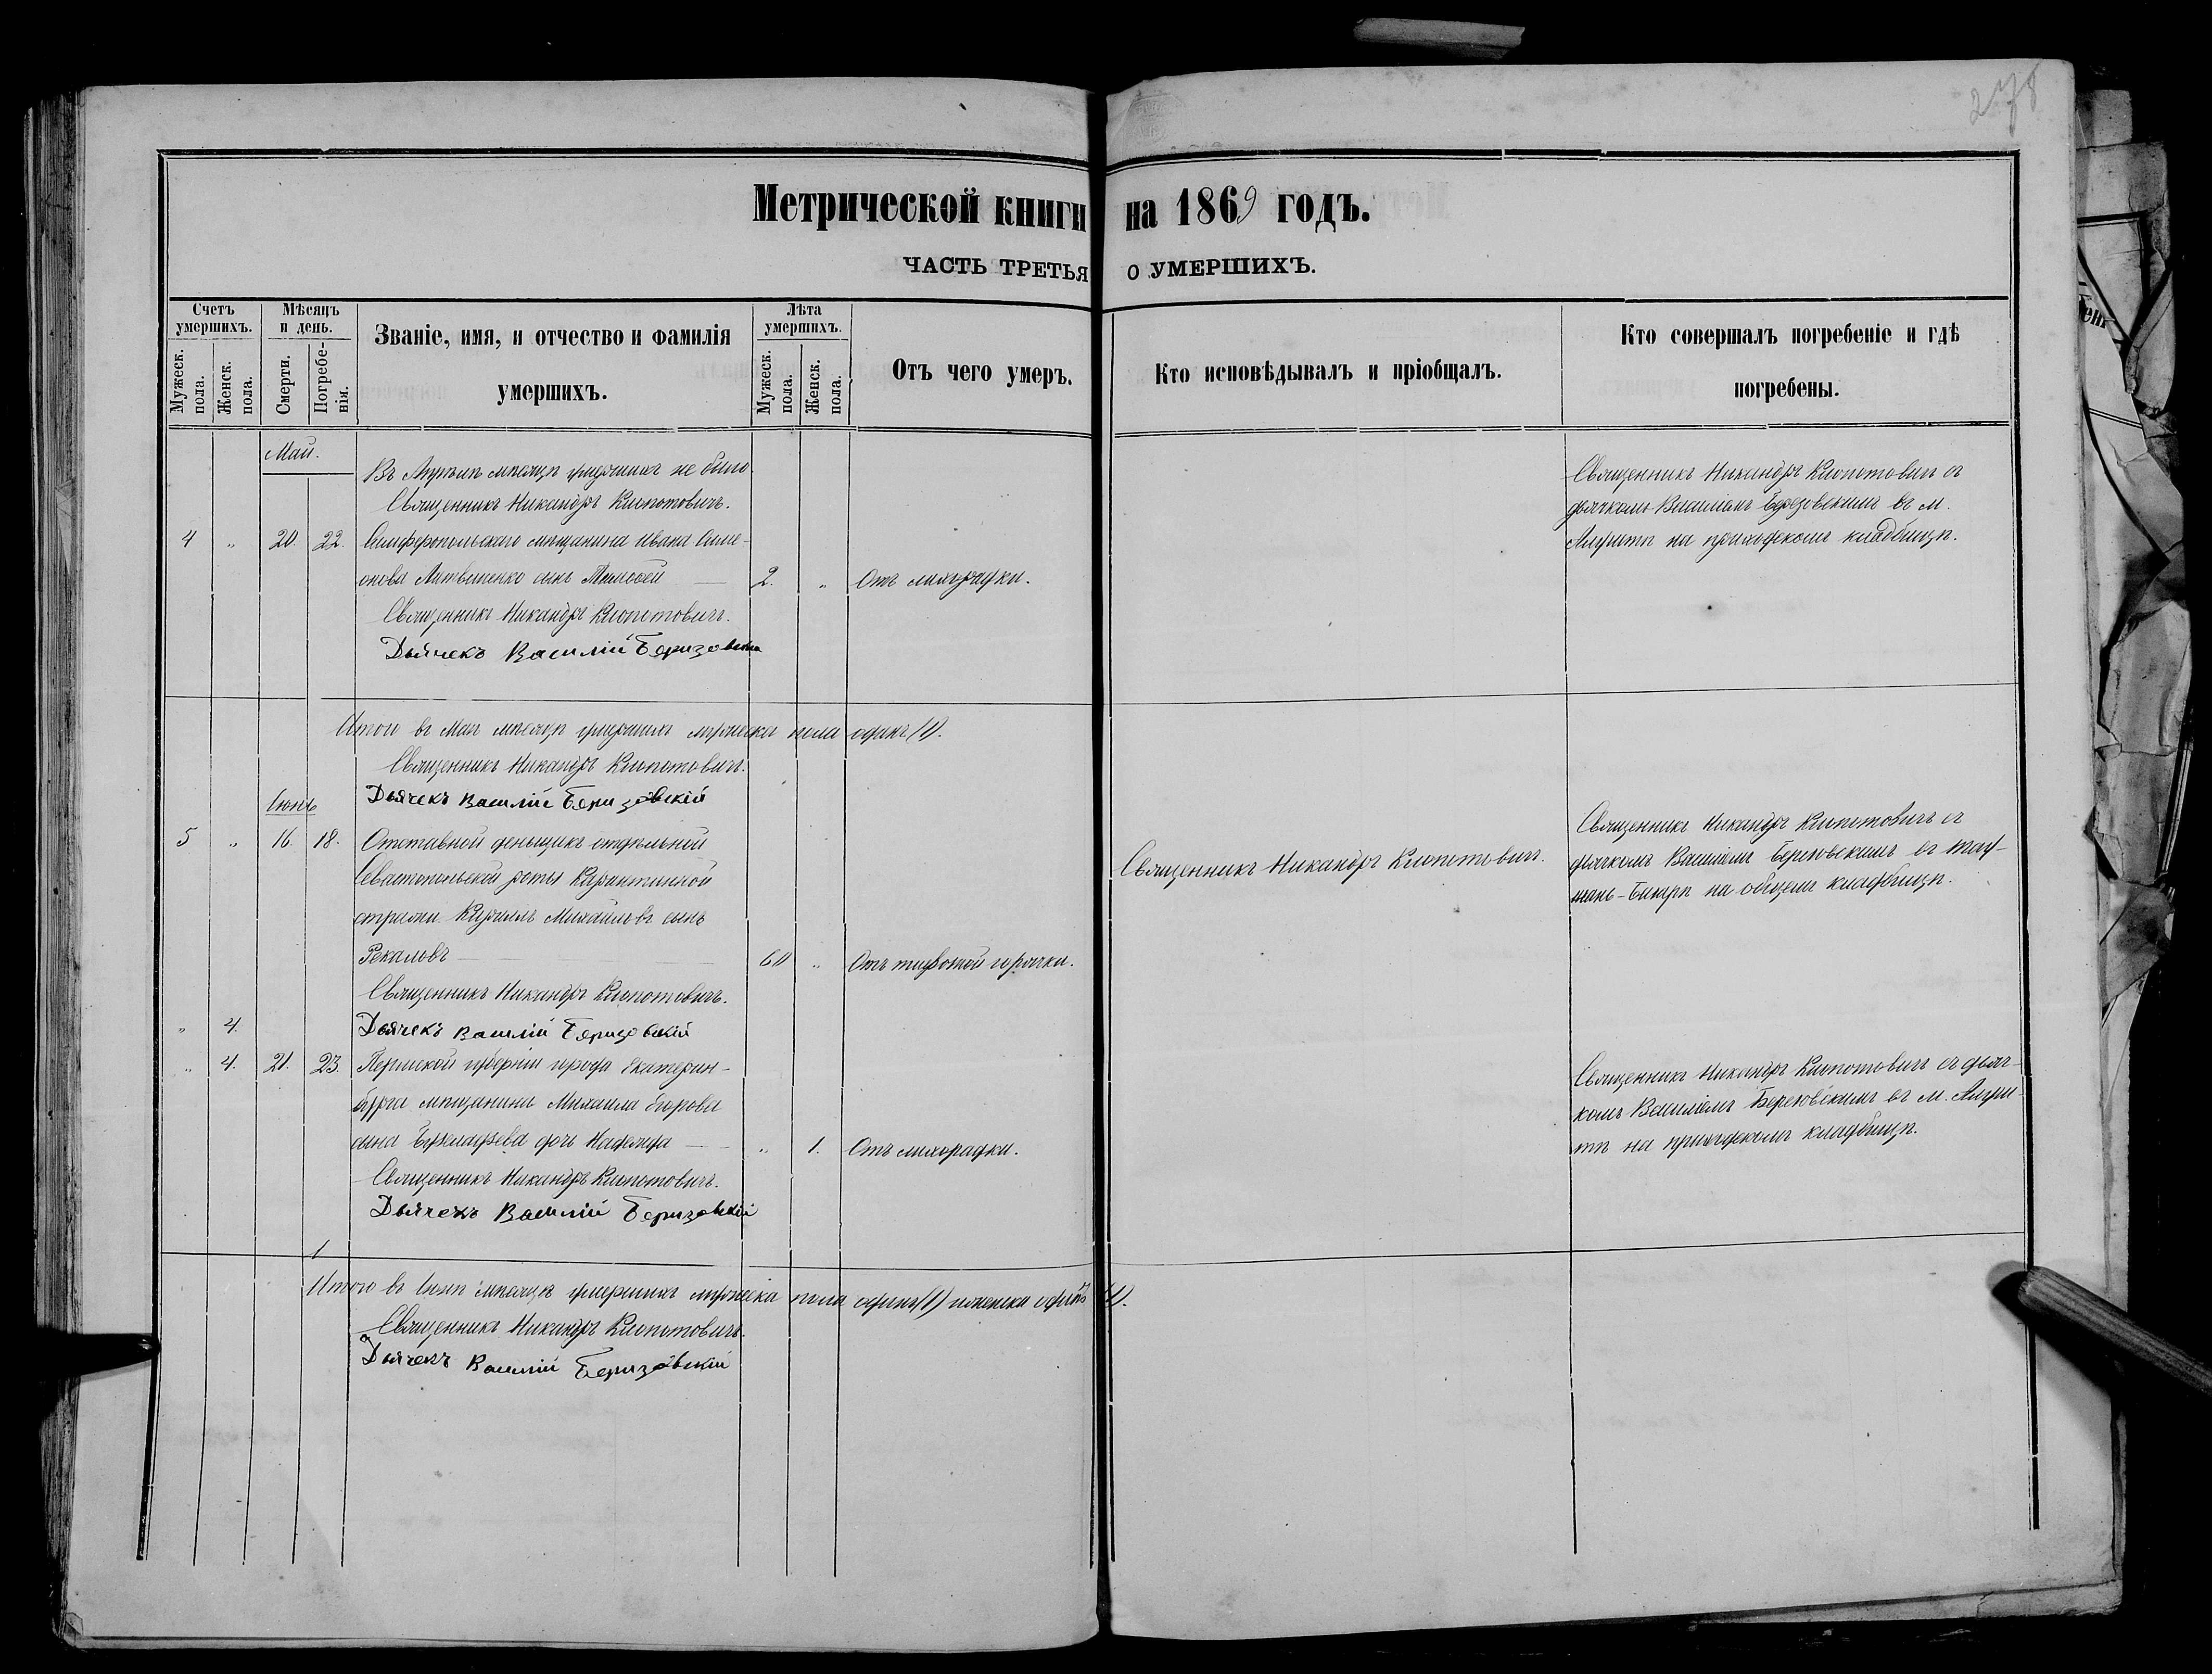 278
Метрической книги на 1869 годъ.
ЧАСТЬ ТРЕТЬЯ О УМЕРШИХЪ.
Счетъ умершихъ.
Мужеск. пола.
Женск. пола.
Мѣсяцъ и день.
Смерти.
Погребенія.
Званіе, имя, и отчество и фамилія
умершихъ.
Лѣта умершихъ.
Мужеск. пола.
Женск. пола.
Отъ чего умеръ.
Кто исповѣдывалъ и пріобщалъ.
Кто совершалъ погребеніе и гдѣ
погребены.
Май.
Въ мѣсяцѣ умершихъ не было.
Священникъ Никандръ
4 " 20. 22. Симферопольскаго мѣщанина Ивана Симе-
онова Литвиненко сынъ Тимофей 2. " Отъ лихорадки.
Священникъ Никандръ
Дьячекъ Василій
Священникъ Никандръ съ
дьячкомъ Василіемъ Березовскимъ въ м.
на приходскомъ кладбищѣ.
Итого въ Маѣ мѣсяцѣ умершихъ мужеска пола одинъ (1).
Священникъ Никандръ
Дьячекъ Василій Беризовскій
Іюнь
5 " 16. 18. Отставной деньщикъ отдѣльной
Севастопольской роты Карантинной
стражи Кириллъ Михайловъ сынъ
Рекаловъ 60 " Отъ тифозной горячки.
Священникъ Никандръ
Дьячекъ Василій Беризовскій
Священникъ Никандръ
Священникъ Никандръ съ
дьячкомъ Василіемъ Березовскимъ въ
на общемъ кладбищѣ.
" 4.
" 4. 21. 23. Пермской губерніи города Екатерин-
бурга мѣщанина Михаила Егорова
сына дочь Надежда " 1. Отъ лихорадки.
Священникъ Никандръ
Дьячекъ Василій Беризовскій
Священникъ Никандръ съ дьяч-
комъ Василіемъ Березовскимъ въ м.
на приходскомъ кладбищѣ.
Итого въ Іюнѣ мѣсяцѣ умершихъ мужеска пола одинъ (1) и женска одна (1).
Священникъ Никандръ
Дьячекъ Василій Беризовскій